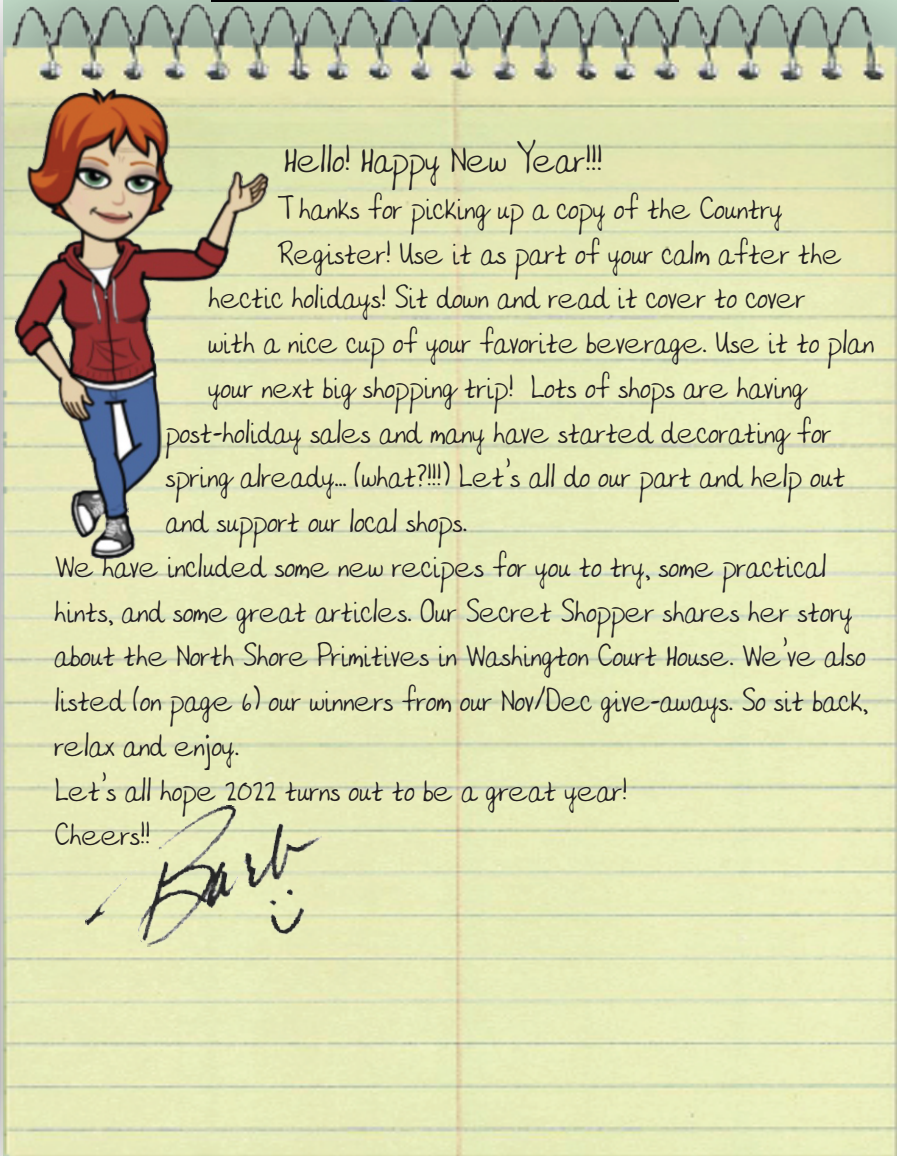 Hello! Happy New Year!!!
Thanks for picking up a copy of the Country
Register! Use it as part of your calm after the
hectic holidays! Sit down and read it cover to cover
with a nice cup of your favorite beverage. Use it to plan
your next big shopping trip! Lots of shops are having
post-holiday sales and many have started decorating for
spring already... (what?!!!) Let's all do our part and help out
and support our local shops.
We have included some new recipes for you to try, some practical
hints, and some great articles. Our Secret Shopper shares her story
about the North Shore Primitives in Washington Court House. We've also
listed (on page 6) our winners from our Nov/Dec give-aways. So sit back,
relax and enjoy.
Let's all hope 2022 turns out to be a great year!
Cheers!!
Barb